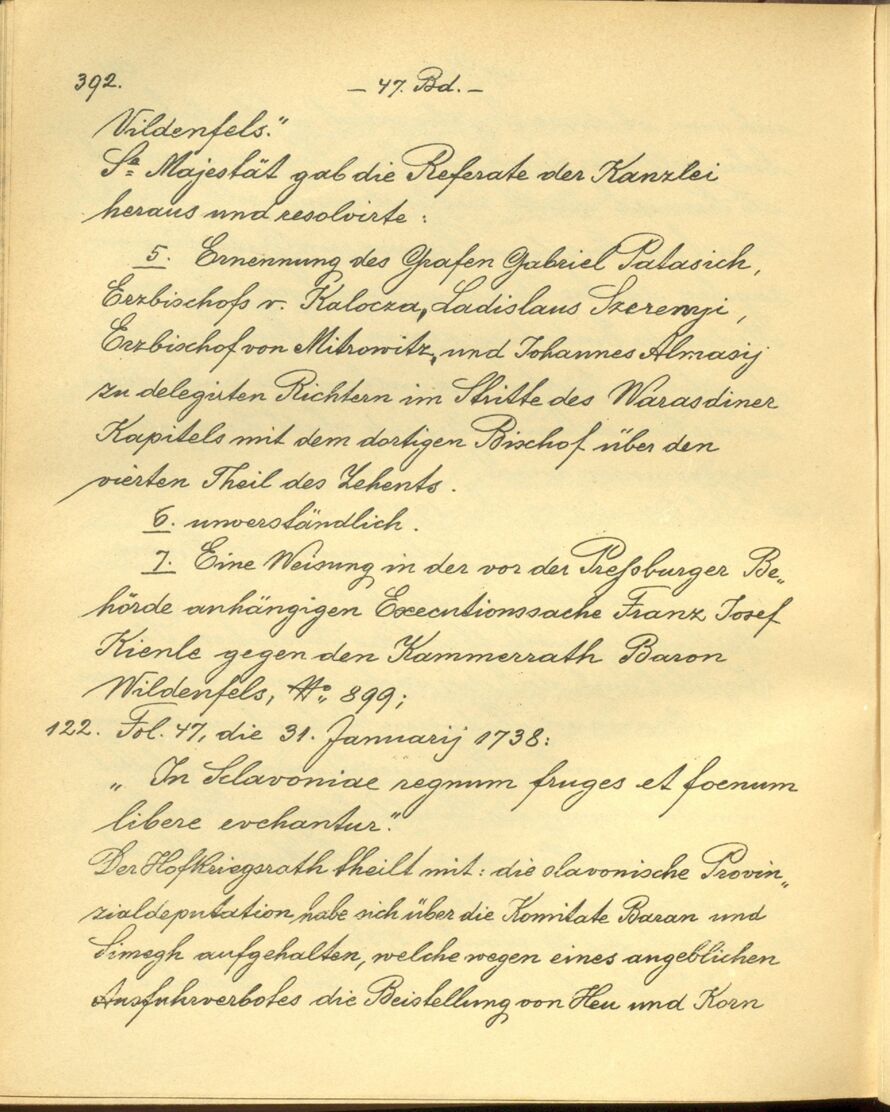 392. – 47. Bd. –
Vildenfels."
Se Majestät gab die Referate der Kanzlei
heraus und resolvirte :
5. Ernennung des Grafen Gabriel Patasich,
Erzbischofs v. Kalocza, Ladislaus Szeremji,
Erzbischof von Mitrowitz, und Johannes Almasij
zu delegirten Richtern im Stritte des Warasdiner
Kapitels mit dem dortigen Bischof über den
vierten Theil des Zehents.
6. unverständlich.
7. Eine Weisung in der vor der Preßburger Be„
hörde anhängigen Executionssache Franz Josef
Kienle gegen den Kammerrath Baron
Wildenfels, No. 899;
122. Fol. 47, die 31. Januarij 1738:
„ In Sclavoniae regnum fruges et foenum
libere evchantur."
Der Hofkriegsrath theilt mit: die slavonische Provin„
zialdeputation habe sich über die Komitate Baran und
Simegh aufgehalten, welche wegen eines angeblichen
Ausfuhrverbotes die Beistellung von Heu und Korn